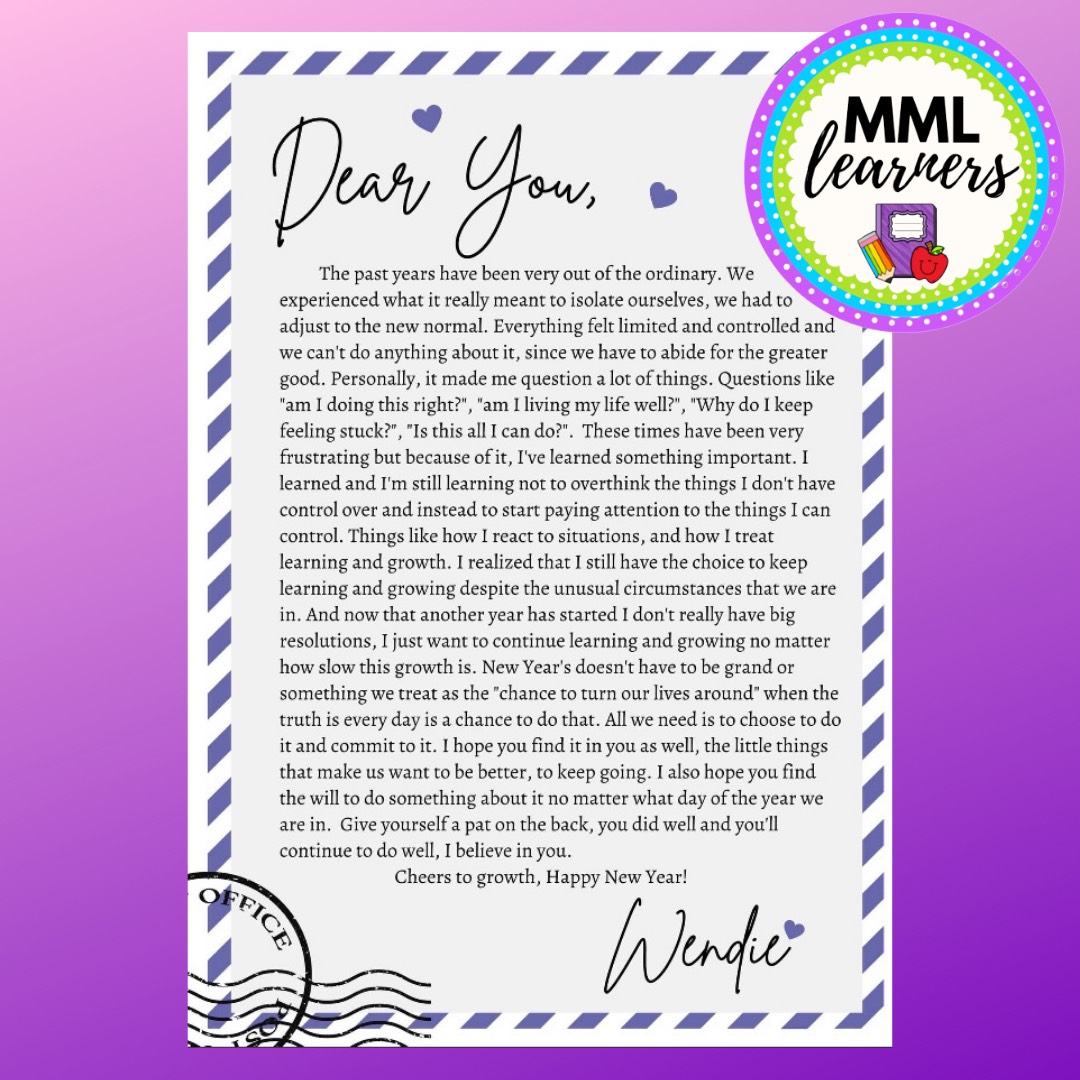 MML
learners
Dear You,
The past years have been very out of the ordinary. We
experienced what it really meant to isolate ourselves, we had to
adjust to the new normal. Everything felt limited and controlled and
we can't do anything about it, since we have to abide for the greater
good. Personally, it made me question a lot of things. Questions like
"am I doing this right?", "am I living my life well?", "Why do I keep
feeling stuck?", "Is this all I can do?".  These times have been very
frustrating but because of it, I've learned something important. I
learned and I'm still learning not to overthink the things I don't have
control over and instead to start paying attention to the things I can
control. Things like how I react to situations, and how I treat
learning and growth. I realized that I still have the choice to keep
learning and growing despite the unusual circumstances that we are
in. And now that another year has started I don't really have big
resolutions, I just want to continue learning and growing no matter
how slow this growth is. New Year's doesn't have to be grand or
something we treat as the "chance to turn our lives around" when the
truth is every day is a chance to do that. All we need is to choose to do
it and commit to it. I hope you find it in you as well, the little things
that make us want to be better, to keep going. I also hope you find
the will to do something about it no matter what day of the year we
are in.  Give yourself a pat on the back, you did well and you'll
continue to do well, I believe in you.
Cheers to growth, Happy New Year!
Wendie
OFFICE
POST